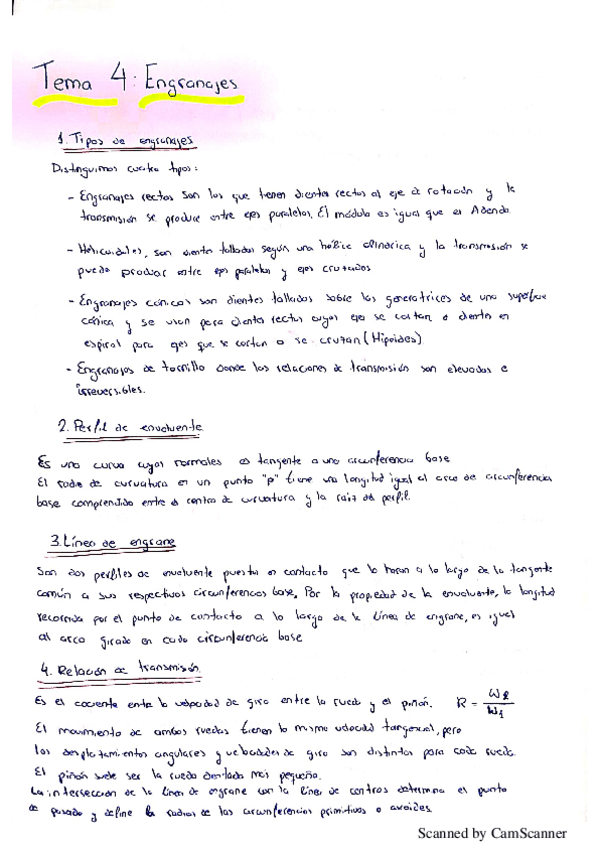 Tema 4: Engranajes
1. Tipos de engranajes
Distinguimos cuatro tipos:
- Engranajes rectos son los que tienen dientes rectos al eje de rotación y la
transmisión se produce entre ejes paralelos. El módulo es igual que es Adendo.
- Helicoidales, son dientes tallados según una hélice cilíndrica y la transmisión se
puede producir entre ejes paralelos y ejes cruzados
- Engranajes cónicos son dientes tallados sobre las generatrices de una superficie
cónica y se usan para dientes rectos cuyos ejes se cortan o dientes en
espiral para ejes que se cortan o se cruzan (Hipoides)
- Engranajes de tornillo donde las relaciones de transmisión son elevadas e
irreversibles.
2. Perfil de envolvente
Es una curva cuyas normales es tangente a una circunferencia base
El radio de curvatura en un punto "p" tiene una longitud igual al arco de circunferencia
base comprendido entre el centro de curvatura y la raiz del perfil.
3. Línea de engrane
Son dos perfiles de envolvente puestos en contacto que lo haran a lo largo de la tangente
común a sus respectivas circunferencias base. Por la propiedad de la envolvente, la longitud
recorrida por el punto de contacto a lo largo de la línea de engrane, es igual
al arco girado en cada circunferencia base
4. Relación de transmisión
Es el cociente entre la velocidad de giro entre la rueda y el piñón. R = ω2/ω1
El movimiento de ambas ruedas tienen la misma velocidad tangencial, pero
los desplazamientos angulares y velocidades de giro son distintos para cada rueda.
El piñón suele ser la rueda dentada más pequeña.
La intersección de la línea de engrane con la línea de centros determina el punto
de pasado y define los radios de las circunferencias primitivas o axoides.
Scanned by CamScanner